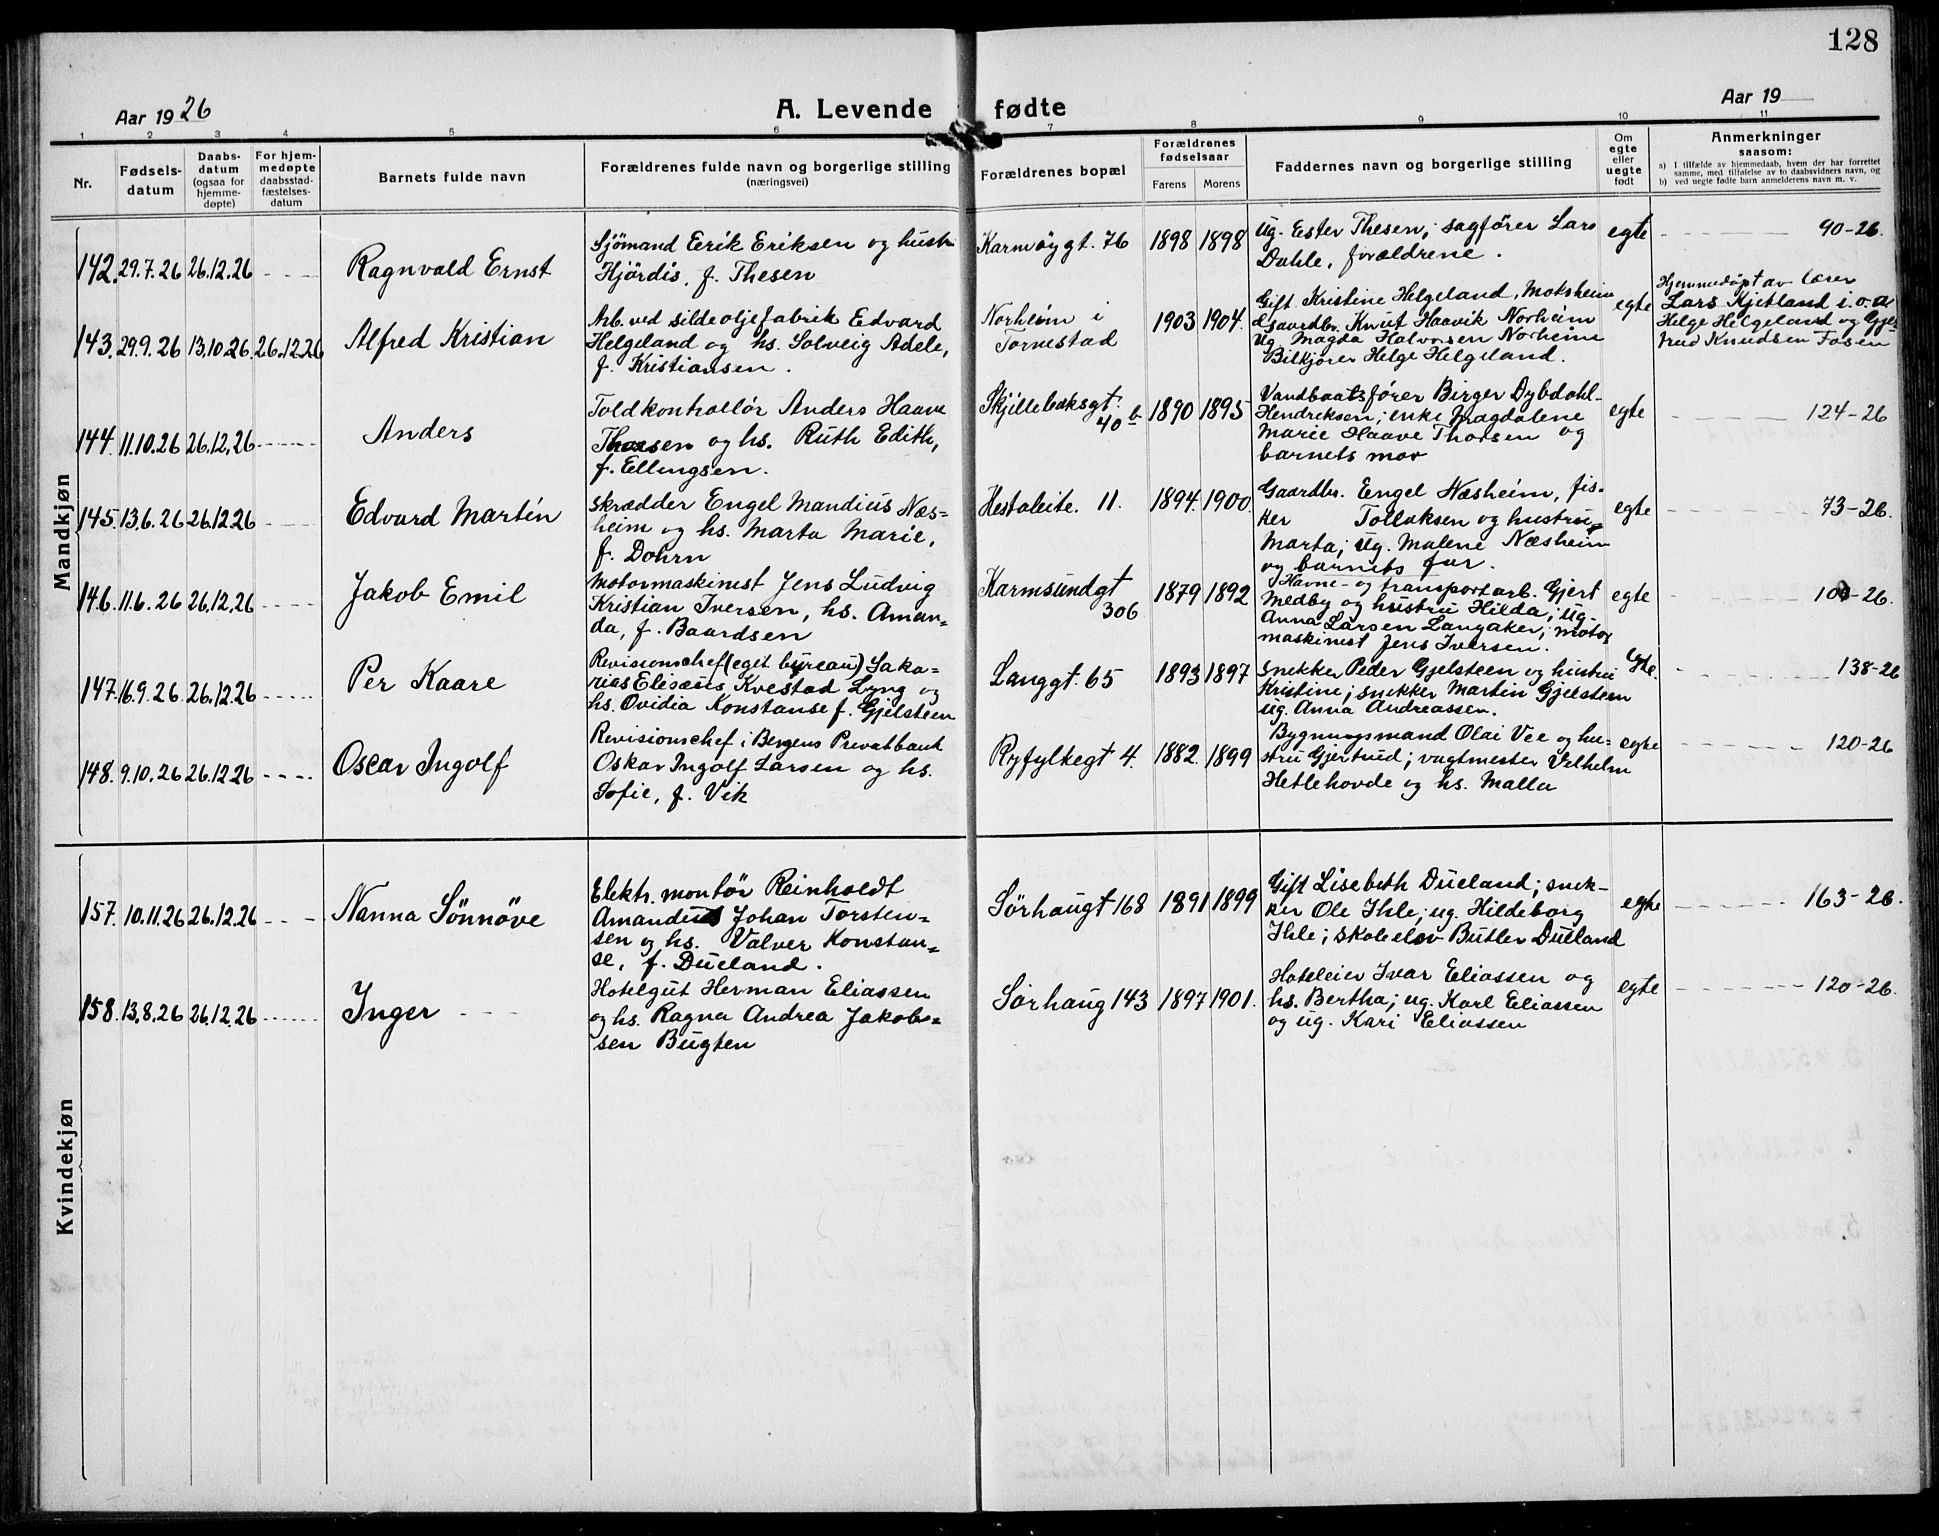 128
Aar 1926
A. Levende fødte
Aar 19
1 2 3 4 5 6 7 8 9 10 11
Nr.
Fødsels-
datum
Daabs-
datum
(ogsaa for
hjemme-
døpte)
For hjem-
medøpte
daabsstad-
fæstelses-
datum
Barnets fulde navn
Forældrenes fulde navn og borgerlige stilling
(næringsvei)
Forældrenes bopæl
Forældrenes
fødselsaar
Farens Morens
Faddernes navn og borgerlige stilling
Om
egte
eller
uegte
født
Anmerkninger
saasom:
a) I tilfælde av hjemmedaab, hvem der har forrettet
samme, med tilføielse av to daabsvidners navn, og
b) ved uegte fødte barn anmelderens navn m. v.
Mandkjøn
142. 29.7.26 26.12.26 Ragnvald Ernst
Sjömand Eerik Eriksen og hustr.
Hjördis, f. Thesen
Karmöygt. 76 1898 1898
Ug. Ester Thesen; sagförer Lars
Dahle, forældrene.
egte 90-26.
143. 29.9.26 13.10.26. 26.12.26 Alfred Kristian
Arb. ved sildeoljefabrik Edvard
Helgeland og hs. Solveig Adele,
f. Kristiansen.
Norheim i
Tornestad
1903 1904.
Gift Kristine Helgeland, Motsheim
Gaardbr. Knut Haavik Norheim
Ug. Magda Halvorsen Norheim
Bilkjörer Helge Helgeland.
egte
Hjemmedöpt av lærer
Lars Kjetland i.o.a
Helge Helgeland og Gjer-
trud Knudsen Fosen
144. 11.10.26 26.12.26 Anders
Toldkontrollör Anders Haave
Thorsen og hs. Ruth Edith,
f. Ellingsen.
Skjillebæksgt.
40 b
1890 1895
Vandbaatsförer Birger Dybdahl-
Hendriksen; enke Magdalene
Marie Haave Thorsen og
barnets mor
egte 124-26
145. 13.6.26 26.12.26 Edvard Martin
Skrædder Engel Mandius Næs-
heim og hs. Marta Marie,
f. Dohrn
Hestaleite. 11. 1894. 1900.
Gaardbr. Engel Næsheim, fis-
ker Tollaksen og hustru
Marta; ug. Malene Næsheim
og barnets far.
egte 73-26.
146. 11.6.26 26.12.26 Jakob Emil
Motormaskinist Jens Ludvig
Kristian Iversen, hs. Aman-
da, f. Baardsen
Karmsundgt
306
1879 1892
Havne- og transportarb. Gjert
Medby og hustru Hilda; ug.
Anna Larsen Langaker; motor
maskinist Jens Iversen.
egte -26.
147. 16.9.26. 26.12.26 Per Kaare
Revisionschef (eget byreau) Saka-
rias Elisæus Kvestad Lyng og
hs. Ovidia Konstanse f. Gjelsteen
Langgt. 65 1893 1897
Snekker Peder Gjelsteen og hustru
Kristine; snekker Martin Gjelsteen
ug. Anna Andreassen.
Egte. 138-26
148. 9.10.26 26.12.26 Oscar Ingolf
Revisionschef i Bergens Privatbank
Oskar Ingolf Larsen og hs.
Sofie, f. Vik
Ryfylkegt 4. 1882. 1899
Bygningsmand Olai Vee og hu-
stru Gjertrud; vagtmester Vilhelm
Hetlehovde og hs. Malla
egte 120-26
Kvindekjøn
157. 10.11.26 26.12.26 Nanna Sönnöve
Elektr. montör Reinholdt
Amandus Johan Torsten-
sen og hs. Valver Konstan-
se, f. Dueland.
Sörhaugt 168 1891 1899
Gift Lisebeth Dueland; snek-
ker Ole Ihle; ug. Hildeborg
Ihle; skoleelev Butler Dueland
egte 163-26.
158. 13.8.26 26.12.26 Inger
Hotelgut Herman Eliassen
og hs. Ragna Andrea Jakob-
sen Bugten
Sörhaug 143 1897 1901.
Hoteleier Ivar Eliassen og
hs. Bertha; ug. Karl Eliassen
og ug. Kari Eliassen
egte 120-26.